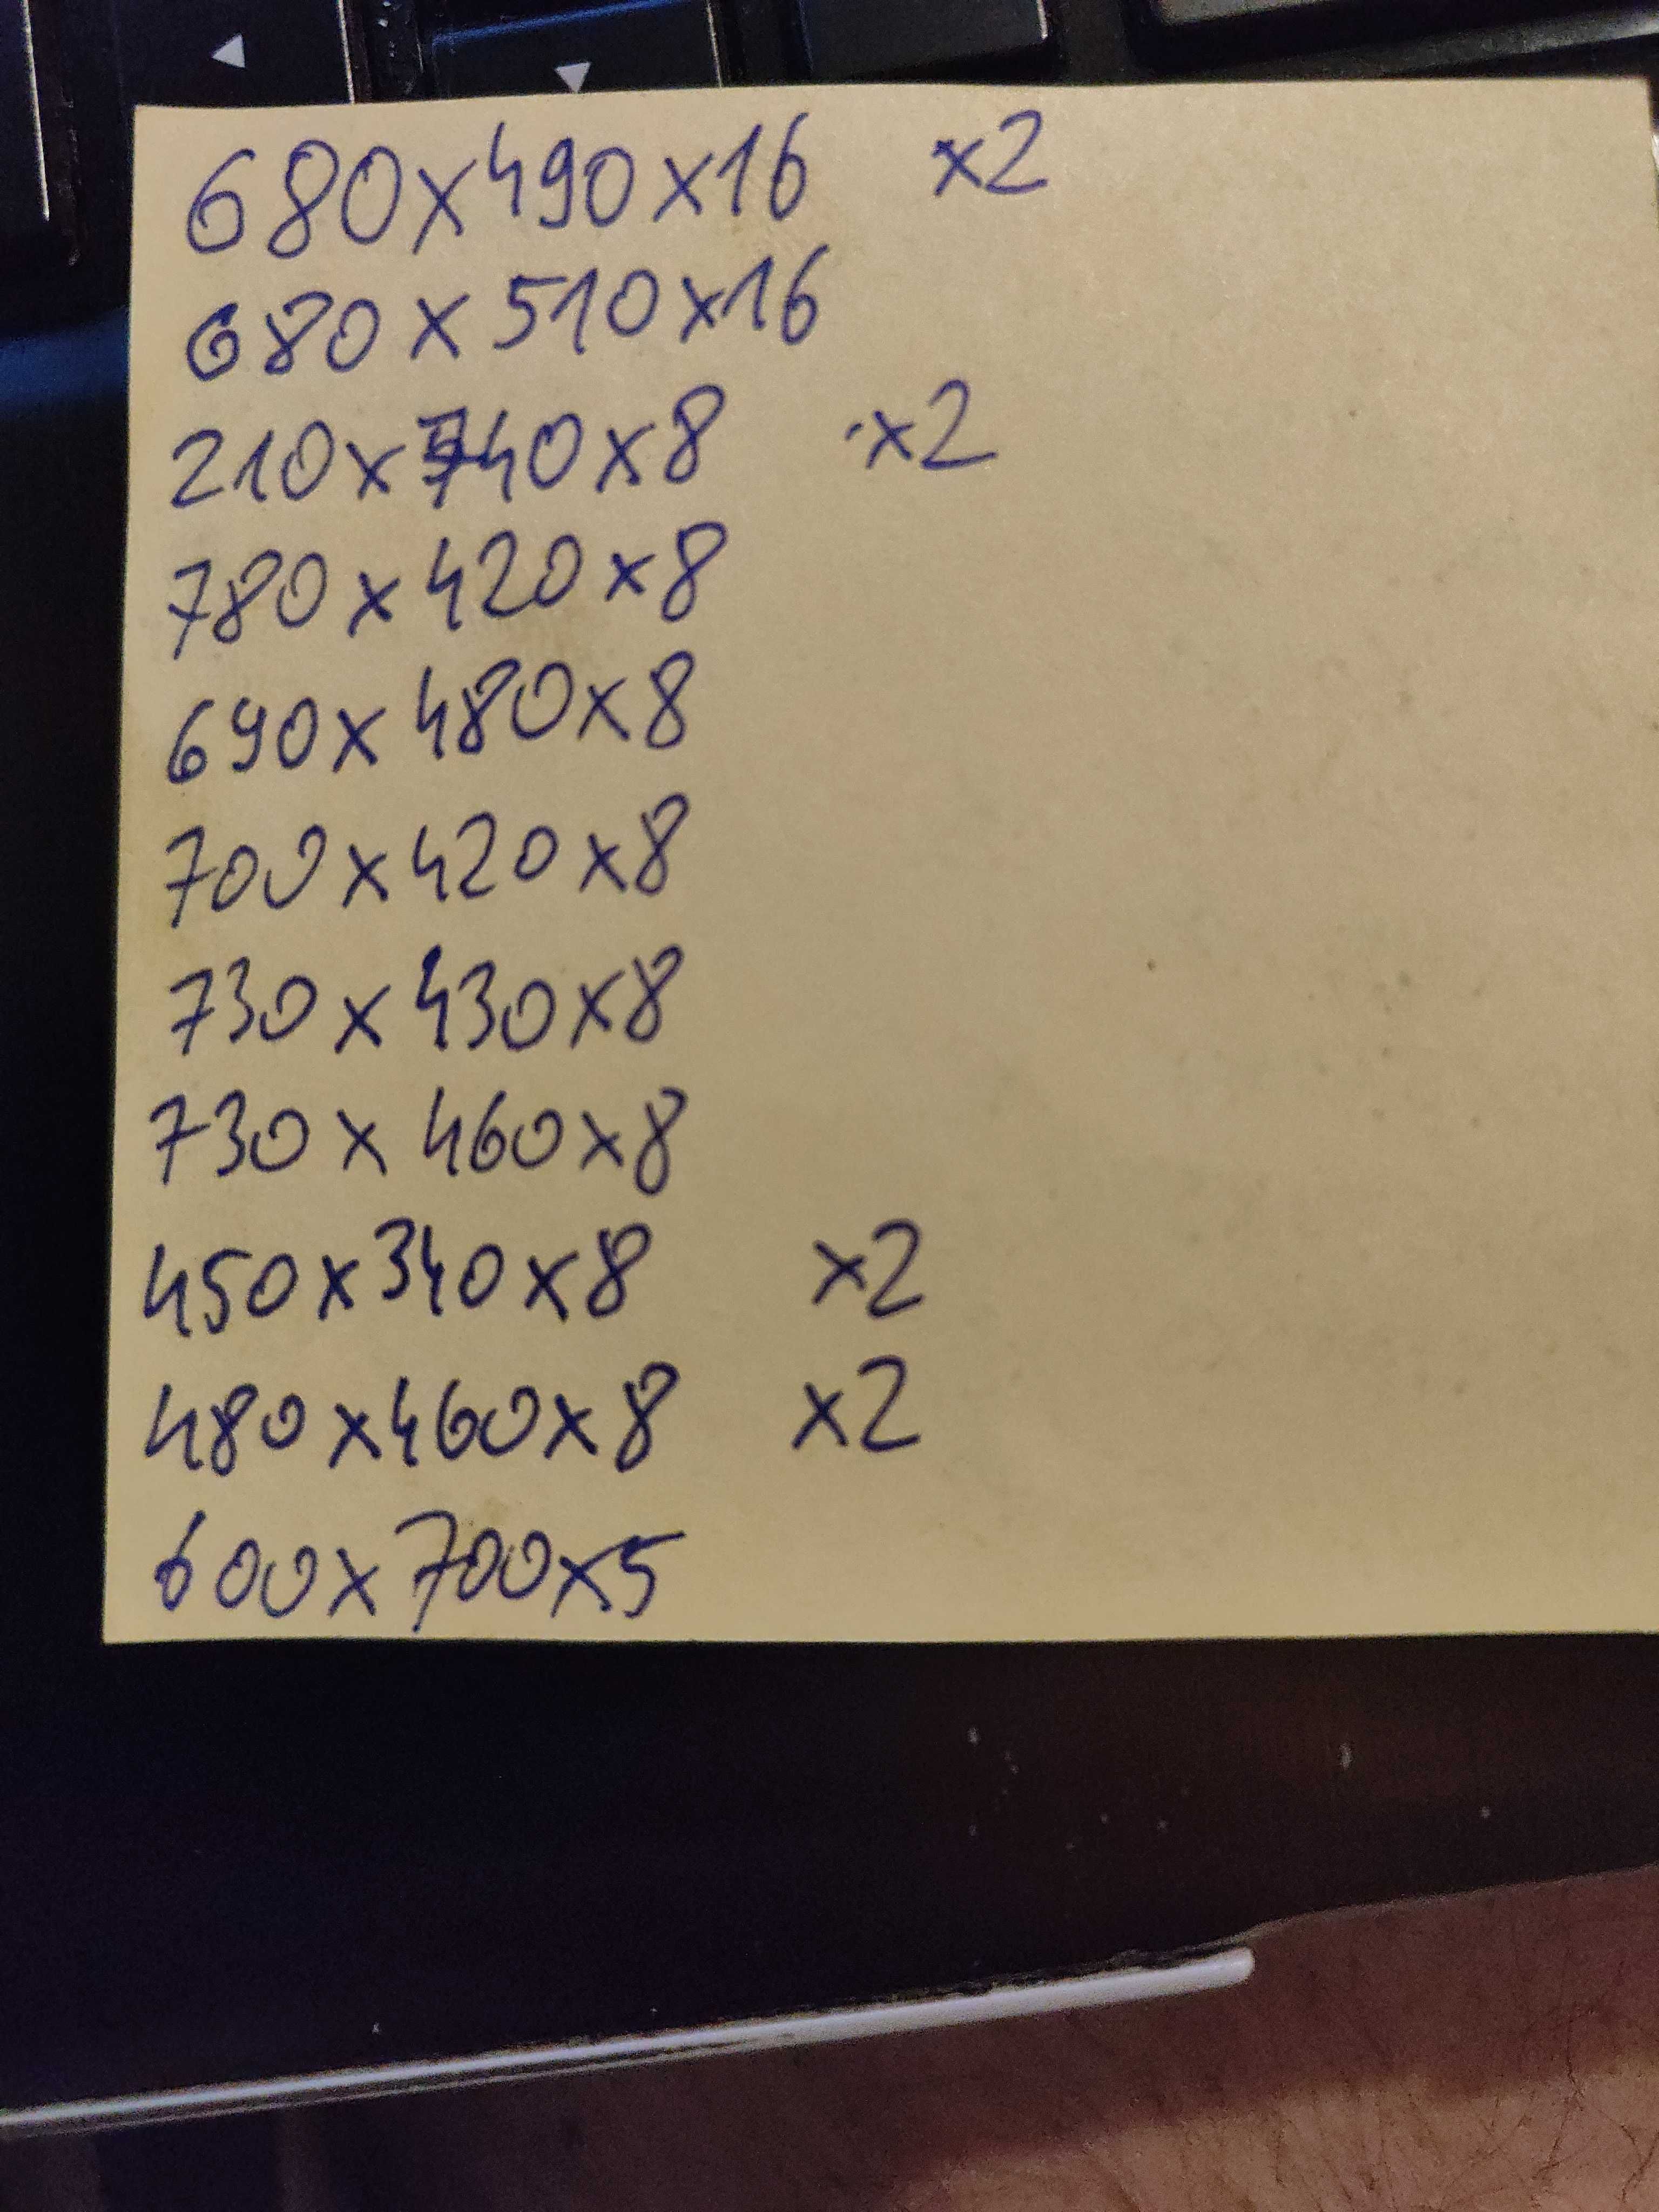 680x490x16 x2
680x510x16
210x740x8 x2
780x420x8
690x480x8
700x420x8
730x430x8
730x460x8
450x340x8 x2
480x460x8 x2
600x700x5